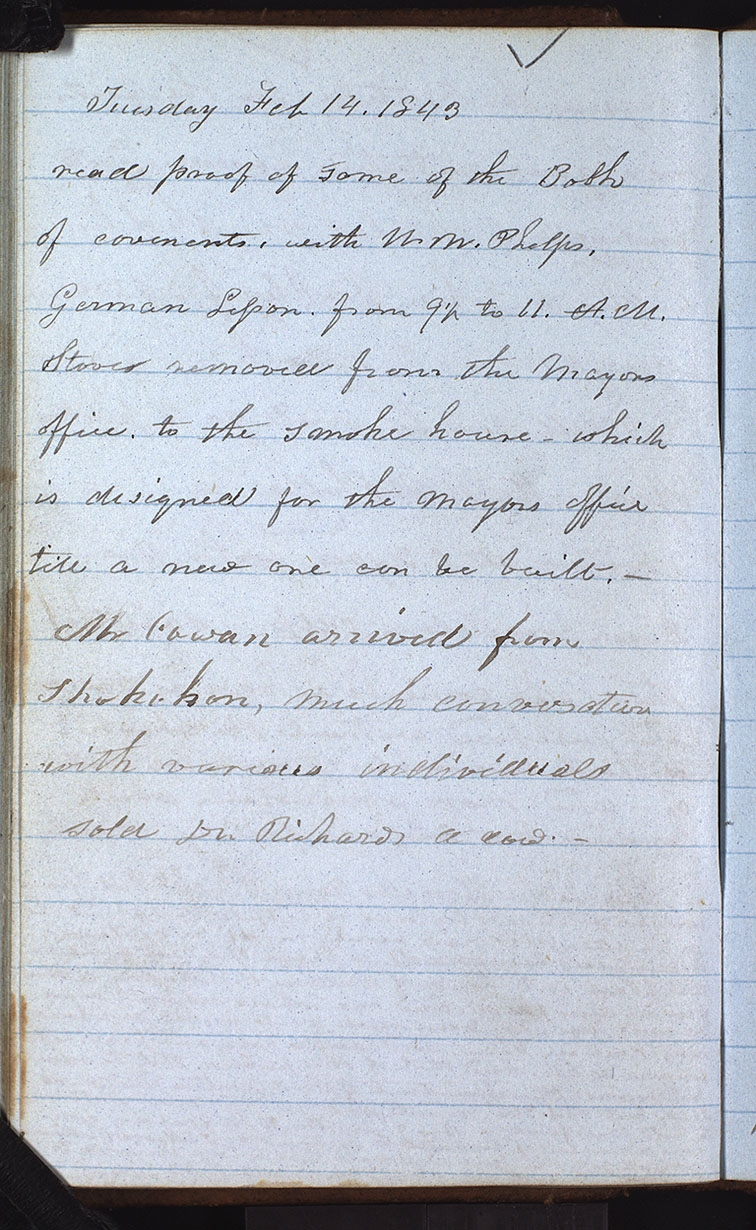 Tuesday Feb 14. 1843
read proof of some of the Book
of covenents. with W. W. Phelps.
German Lesson. from 9½ to 11. A.M.
Stoves removed from the Mayors
office. to the smoke house - which
is designed for the Mayors office
till a new one can be built. —
Mr Cowan arrived from
Shokokon, much conversation
with various individuals
sold Dr. Richards a cow. —